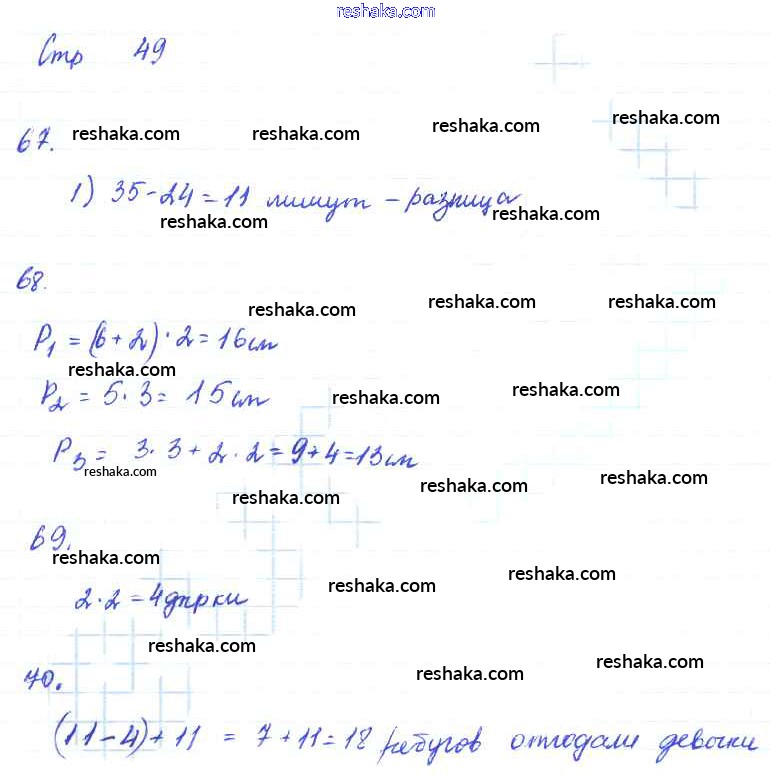 reshaka.com
Стр 49
67.
reshaka.com reshaka.com reshaka.com reshaka.com
1) 35-24=11 минут - разница
reshaka.com reshaka.com
68.
reshaka.com reshaka.com reshaka.com
P1 = (6+2)·2=16см
reshaka.com
P2 = 5·3= 15см
reshaka.com reshaka.com
P3 = 3·3+2·2=9+4=13см
reshaka.com
reshaka.com reshaka.com reshaka.com
69.
reshaka.com
reshaka.com reshaka.com
2·2=4дырки
reshaka.com
reshaka.com reshaka.com
70.
(11-4)+11 = 7+11=18 ребусов отгадали девочки